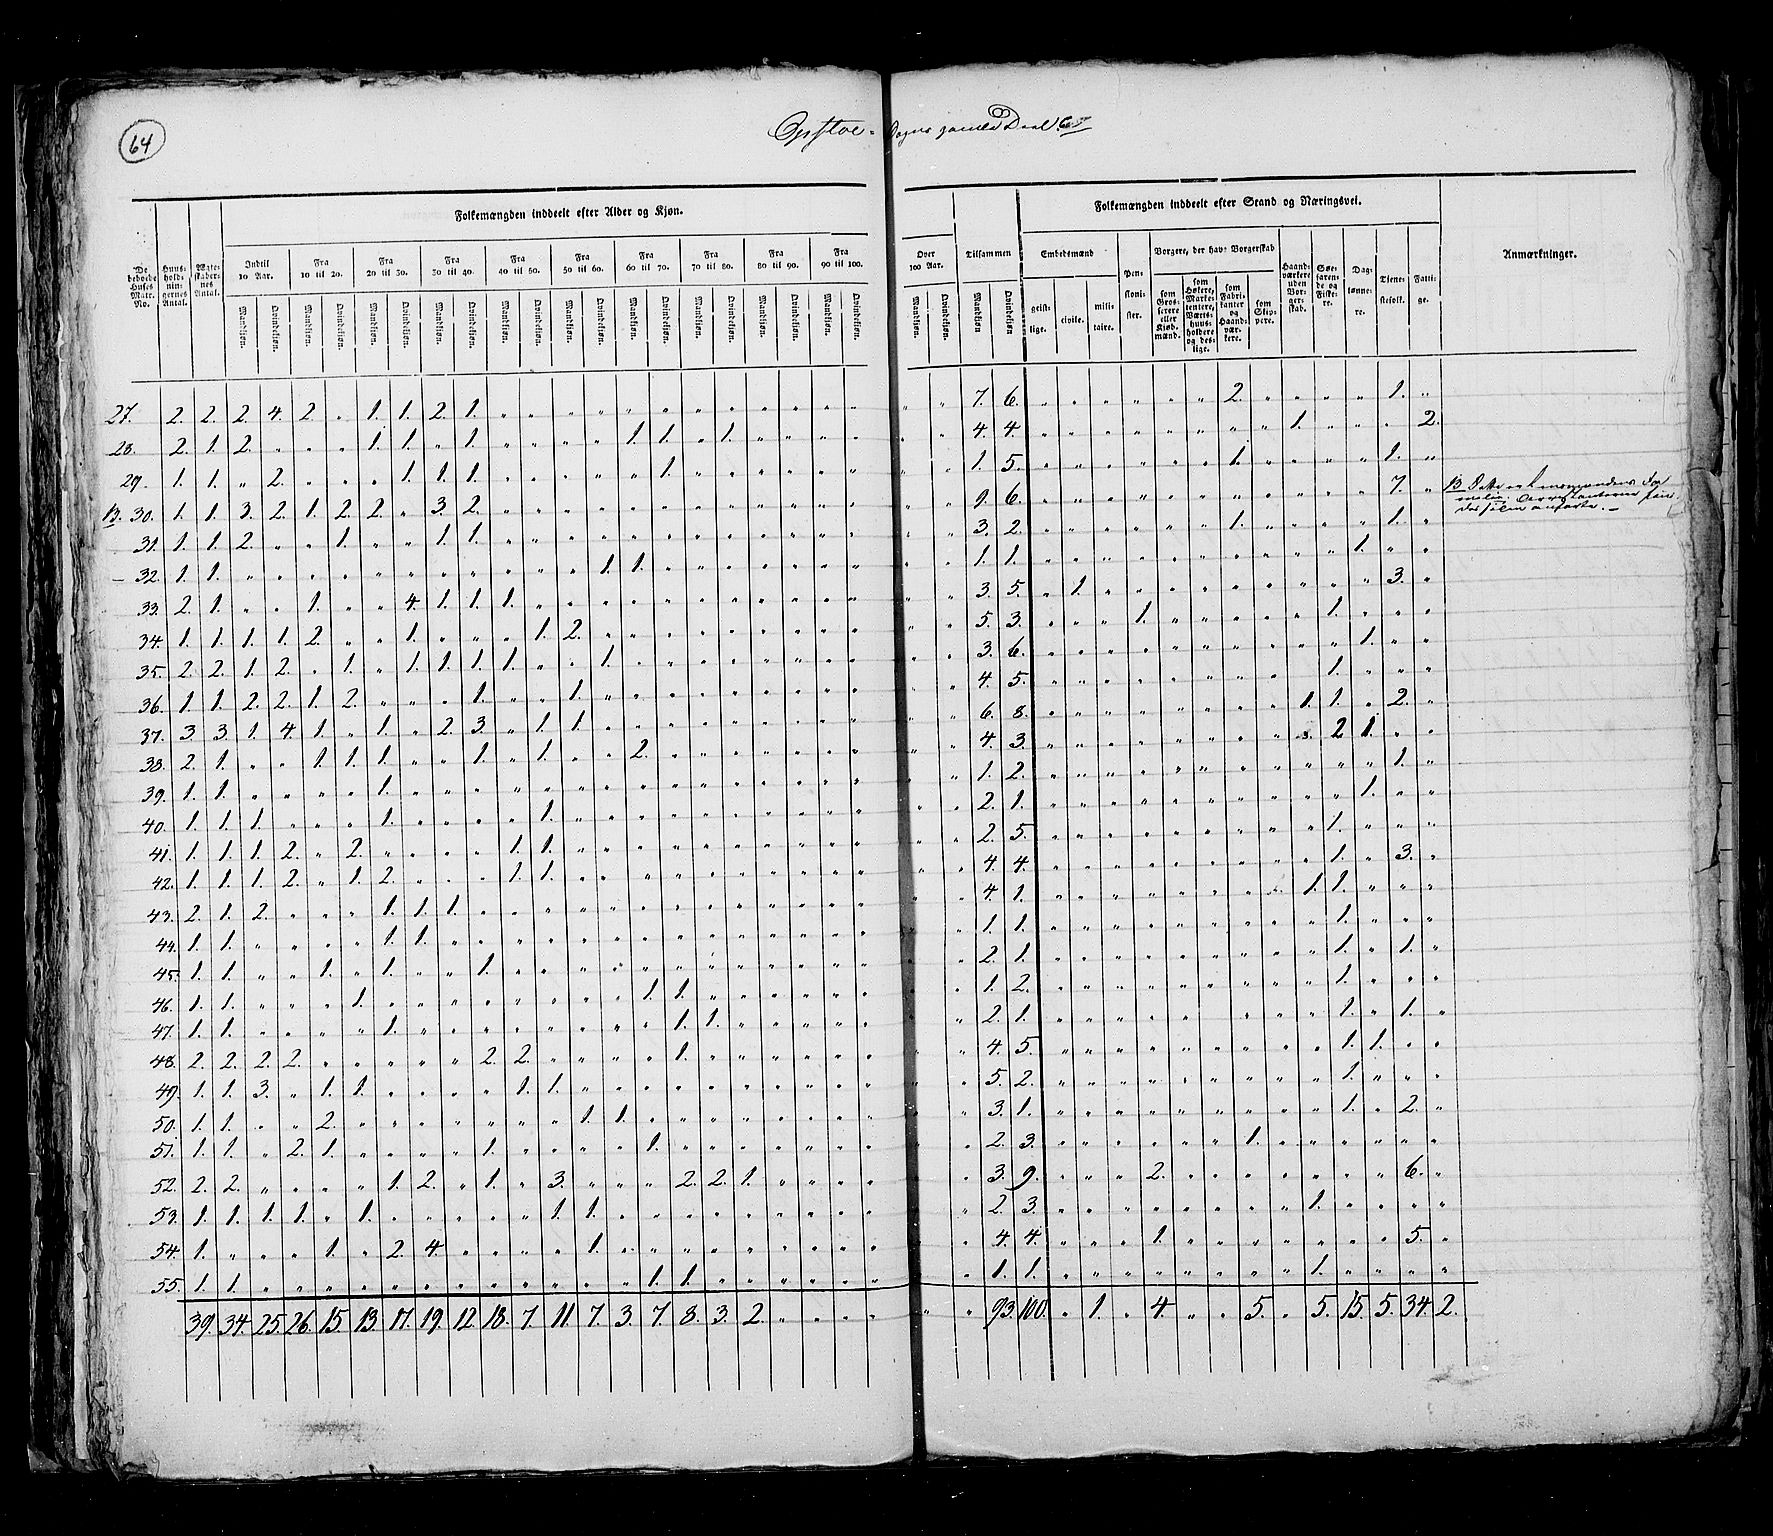 64
Opstoe-
De beboede Huses Matr. No.
Huusholdningernes Antal.
Ægteskabernes Antal.
Folkemængden inddeelt efter Alder og Kjøn.
Indtil 10 Aar.
Fra 10 til 20.
Fra 20 til 30.
Fra 30 til 40.
Fra 40 til 50.
Fra 50 til 60.
Fra 60 til 70.
Fra 70 til 80.
Fra 80 til 90.
Fra 90 til 100.
Over 100 Aar.
Tilsammen
Mandkjøn. Qvindekjøn.
Folkemængden inddeelt efter Stand og Næringsvei.
Embedsmænd
geistlige.
civile.
militaire.
Pensionister.
Borgere, der have Borgerskab
som Grosserere eller Kjøbmænd.
som Høkere, Marketentere, Værtshuusholdere og deslige.
som Fabrikanter og Haandværkere.
som Skippere.
Haandværkere uden Borgerskab.
Søefarende og Fiskere.
Daglønnere.
Tjenestefolk.
Fattige.
Anmærkninger.
27. 2. 2. 2. 4. 2. „ 1. 1. 2. 1. „ „ „ „ „ „ „ „ „ „ „ „ „ „ 7. 6. „ „ „ „ „ „ 2. „ „ „ „ 1. „
28. 2. 1. 2. „ „ „ 1. 1. „ 1. „ „ „ „ 1. 1. „ 1. „ „ „ „ „ „ 4. 4. „ „ „ „ „ „ „ „ 1. „ „ „ 2.
29. 1. 1. „ 2. „ „ „ 1. 1. 1. „ „ „ „ „ 1. „ „ „ „ „ „ „ „ 1. 5. „ „ „ „ „ „ 1. „ „ „ „ 1. „
13. 30. 1. 1. 3. 2. 1. 2. 2. „ 3. 2. „ „ „ „ „ „ „ „ „ „ „ „ „ „ 9. 6. „ „ „ „ „ „ „ „ „ „ „ 7. „
31. 1. 1. 2. „ „ 1. „ „ 1. 1. „ „ „ „ „ „ „ „ „ „ „ „ „ „ 3. 2. „ „ „ „ „ „ 1. „ „ „ „ 1. „
32. 1. 1. „ „ „ „ „ „ „ „ „ „ 1. 1. „ „ „ „ „ „ „ „ „ „ 1. 1. „ „ „ „ „ „ „ „ „ „ 1. „ „
33. 2. 1. „ „ 1. „ „ 4. 1. 1. 1. „ „ „ „ „ „ „ „ „ „ „ „ „ 3. 5. „ 1. „ „ „ „ „ „ „ „ „ 3. „
34. 1. 1. 1. 1. 2. „ „ 1. „ „ „ 1. 2. „ „ „ „ „ „ „ „ „ „ „ 5. 3. „ „ „ 1. „ „ „ „ „ 1. „ „ „
35. 2. 2. 1. 2. „ 1. „ 1. 1. 1. 1. „ „ 1. „ „ „ „ „ „ „ „ „ „ 3. 6. „ „ „ „ „ „ „ „ „ „ 1. „ „
36. 1. 1. 2. 2. 1. 2. „ „ „ 1. „ „ 1. „ „ „ „ „ „ „ „ „ „ „ 4. 5. „ „ „ „ „ „ „ „ „ 1. „ „ „
37. 3. 3. 1. 4. 1. „ 1. „ 2. 3. „ 1. 1. „ „ „ „ „ „ „ „ „ „ „ 6. 8. „ „ „ „ „ „ „ „ 1. 1. „ 2. „
38. 2. 1. „ „ 1. 1. 1. „ „ 1. „ 1. „ „ 2. „ „ „ „ „ „ „ „ „ 4. 3. „ „ „ „ „ „ „ „ „ 2 1. „ „
39. 1. 1. „ „ „ „ 1. „ „ „ „ „ „ „ „ „ „ „ „ „ „ „ „ „ 1. 2. „ „ „ „ „ „ „ „ „ „ „ 1. „
40. 1. 1. 1. „ „ „ 1. „ „ „ „ 1. „ „ „ „ „ „ „ „ „ „ „ „ 2. 1. „ „ „ „ „ „ „ „ „ „ 1. „ „
41. 1. 1. 1. 2. „ 2. „ „ „ „ 1. 1. „ „ „ „ „ „ „ „ „ „ „ „ 2. 5. „ „ „ „ „ „ „ „ „ 1. „ „ „
42. 1. 1. 1. 2. „ 1. 2. „ „ „ 1. 1. „ „ „ „ „ „ „ „ „ „ „ „ 4. 4. „ „ „ „ „ „ „ „ „ 1. „ 3. „
43. 2. 1. 2. „ „ „ 1. 1. 1. „ „ „ „ „ „ „ „ „ „ „ „ „ „ „ 4. 1. „ „ „ „ „ „ „ „ 1. 1. „ „ „
44. 1. 1. „ „ „ „ 1. 1. „ „ „ „ „ „ „ „ „ „ „ „ „ „ „ „ 1. 1. „ „ „ „ „ „ „ „ „ 1. „ „ „
45. 1. 1. „ „ 1. „ 1. „ „ 1. „ „ „ „ „ „ „ „ „ „ „ „ „ „ 2. 1. „ „ „ „ „ „ „ „ „ 1. „ 1. „
46. 1. 1. „ „ „ 1. „ „ „ „ „ „ „ „ 1. 1. „ „ „ „ „ „ „ „ 1. 2. „ „ „ „ „ „ „ „ „ 1. „ „ „
47. 1. 1. „ „ „ „ 1. „ „ „ „ „ „ „ „ 1. 1. „ „ „ „ „ „ „ 2. 1. „ „ „ „ „ „ „ „ „ 1. „ 1. „
48. 2. 2. 2. 2. „ „ „ „ „ 2. 2. „ „ „ „ 1. „ „ „ „ „ „ „ „ 4. 5. „ „ „ „ „ „ „ „ „ 1. 1. „ „
49. 1. 1. 3. „ 1. 1. „ „ „ „ 1. 1. „ „ „ „ „ „ „ „ „ „ „ „ 5. 2. „ „ „ „ „ „ „ „ „ 1. „ „ „
50. 1. 1. „ „ 2. „ „ „ „ „ „ „ 1. 1. „ „ „ „ „ „ „ „ „ „ 3. 1. „ „ „ „ „ „ „ „ „ 1. „ 2. „
51. 1. 1. „ 2. 1. „ „ „ „ 1. „ „ „ „ 1. „ „ „ „ „ „ „ „ „ 2. 3. „ „ „ „ „ „ 1. „ „ „ „ „ „
52. 2. 2. „ „ „ „ 1. 2. „ 1. „ 3. „ „ „ 2. 2. 1. „ „ „ „ „ „ 3. 9. „ „ „ 2. „ „ „ „ „ „ „ 6. „
53. 1. 1. 1. 1. „ 1. „ „ „ „ „ 1. 1. „ „ „ „ „ „ „ „ „ „ „ 2. 3. „ „ „ „ „ „ „ „ 1. „ „ „ „
54. 1. „ „ „ 1. „ 2. 4. „ „ „ „ 1. „ „ „ „ „ „ „ „ „ „ „ 4. 4. „ „ „ 1. „ „ „ „ „ „ „ 5. „
55. 1. 1. „ „ „ „ „ „ „ „ „ „ „ „ 1. 1. „ „ „ „ „ „ „ „ 1. 1. „ „ „ „ „ „ „ „ 1. „ „ „ „
39. 34. 25. 26. 15. 13. 17. 19. 12. 18. 7. 11. 7. 3. 7. 8. 3. 2. „ „ „ „ „ „ 93. 100. „ 1. „ 4. „ „ 5. „ 5. 15. 5. 34. 2.